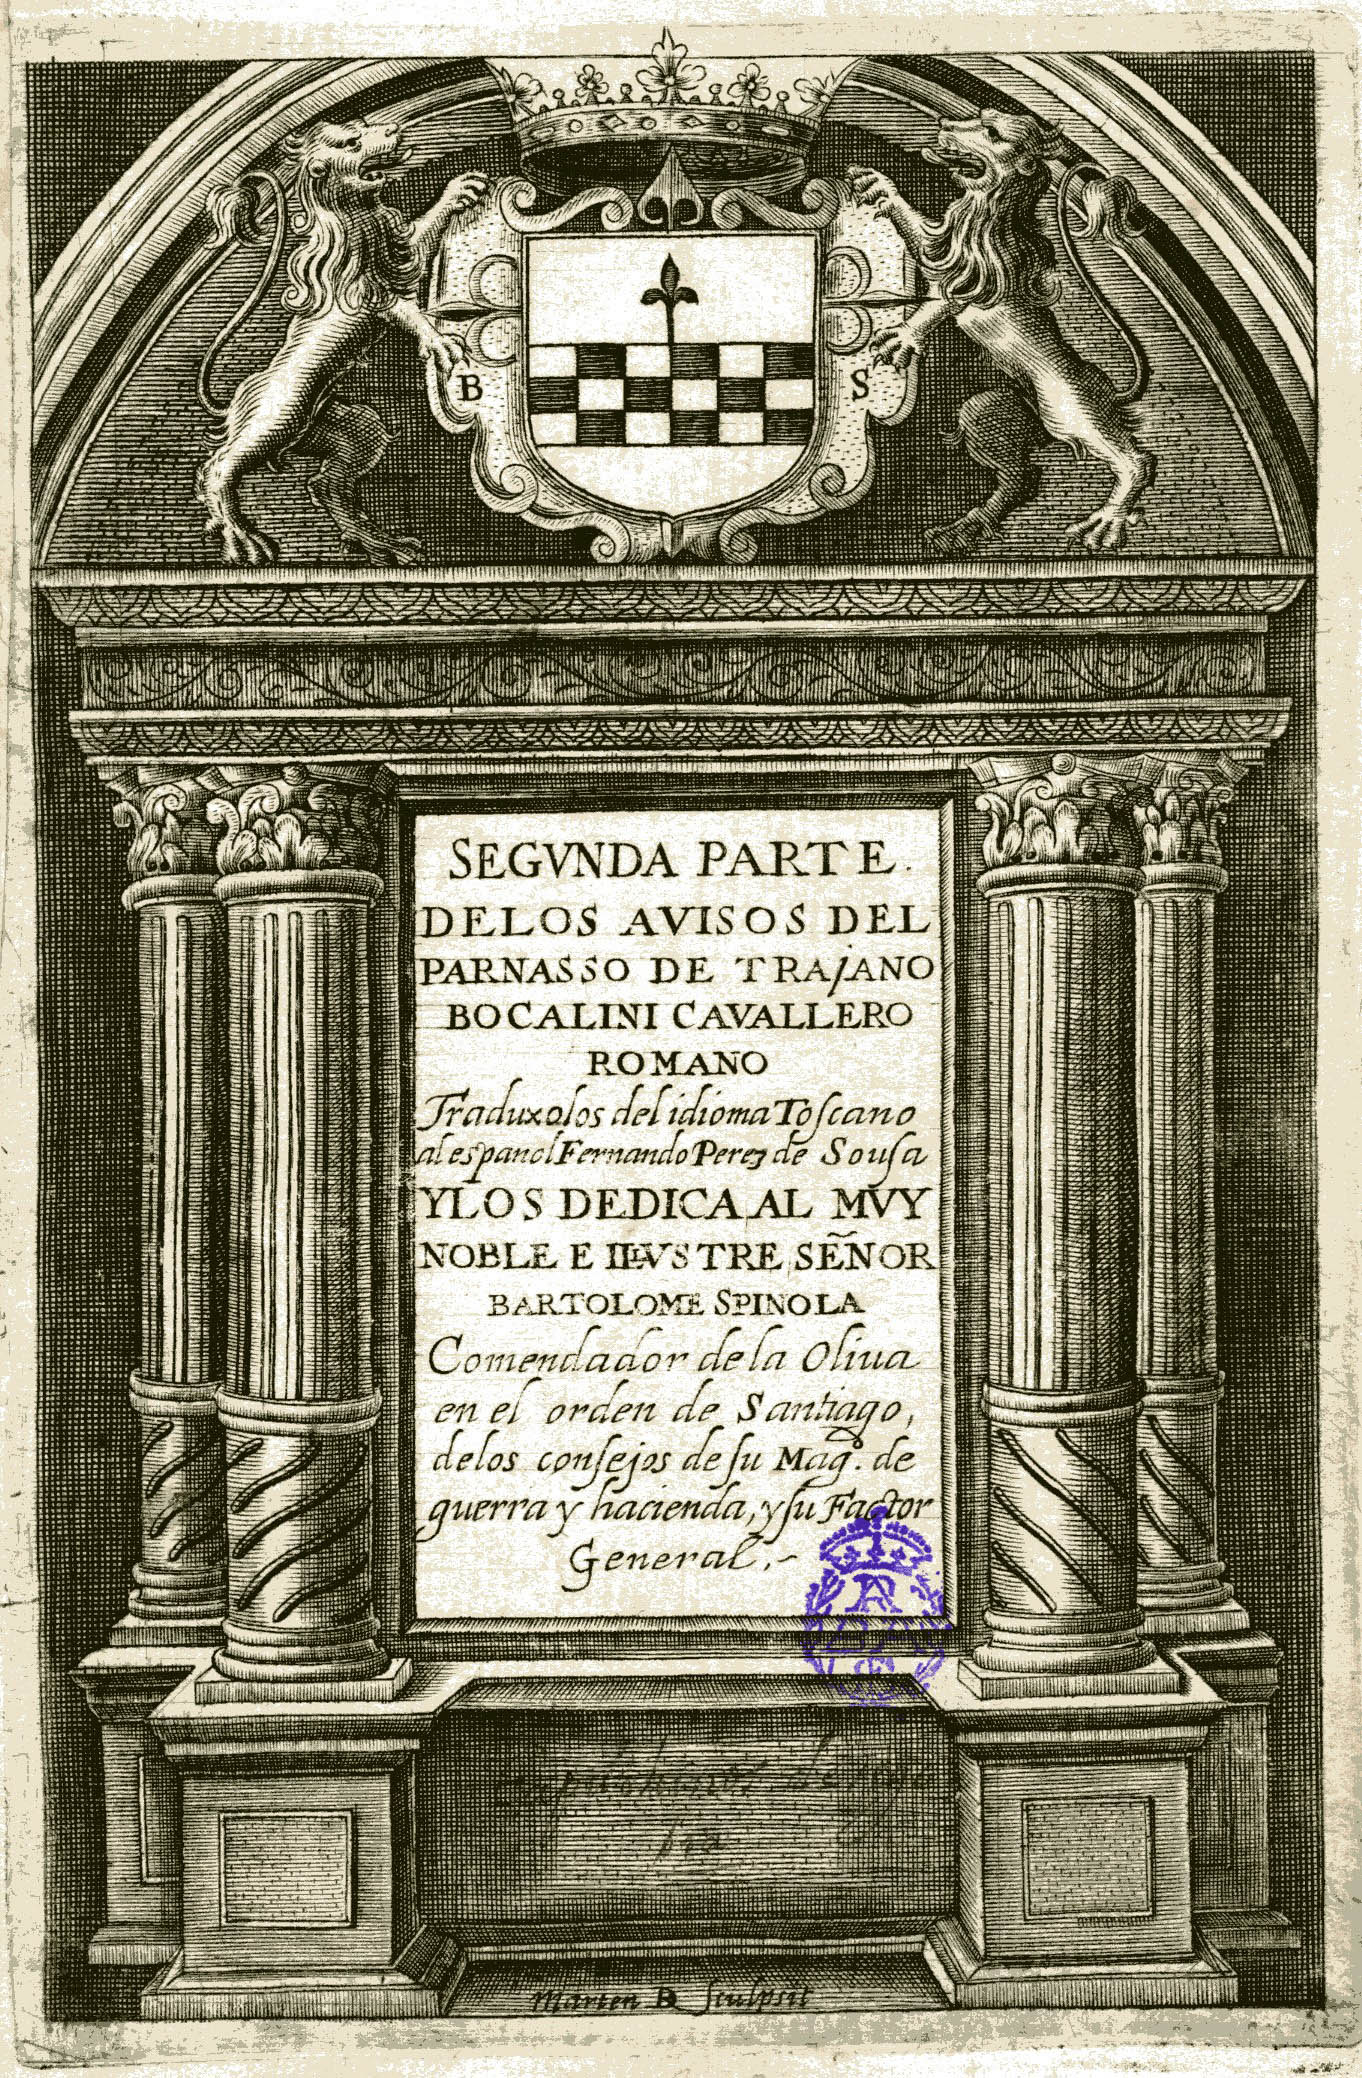 B S
SEGVNDA PARTE.
DELOS AVISOS DEL
PARNASSO DE TRAJANO
BOCALINI CAVALLERO
ROMANO
Traduxolos del idioma Toſcano
al espanol Fernando Perez de Souſa
YLOS DEDICA AL MVY
NOBLE E ILLVSTRE SEÑOR
BARTOLOME SPINOLA
Comendador de la Oliua
en el orden de Santiago,
delos conſejos de ſu Mag.ᵈ de
guerra y hacienda, y ſu Factor
General.-
Marten sculpsit